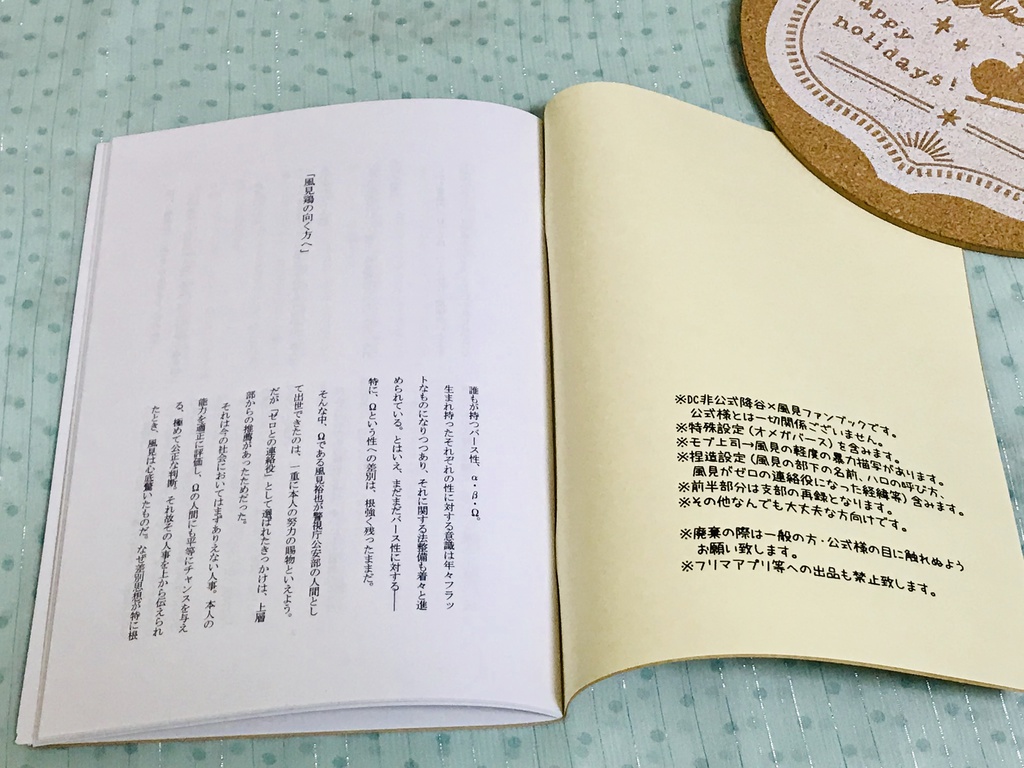 ※DC非公式降谷×風見ファンブックです。
公式様とは一切関係ございません。
※特殊設定(オメガバース)を含みます。
※モブ上司→風見の軽度の暴力描写があります。
※捏造設定(風見の部下の名前、ハロの呼び方、
風見がゼロの連絡役になった経緯等)含みます。
※前半部分は支部の再録となります。
※その他なんでも大丈夫な方向けです。
※廃棄の際は一般の方・公式様の目に触れぬよう
お願い致します。
※フリマアプリ等への出品も禁止致します。
「風見鶏の向く方へ」
誰もが持つバース性、α・β・Ω。
生まれ持ったそれぞれの性に対する意識は年々フラッ
トなものになりつつあり、それに関する法整備も着々と進
められている。とはいえ、まだまだバース性に対する――
特に、Ωという性への差別は、根強く残ったままだ。
そんな中、Ωである風見裕也が警視庁公安部の人間とし
て出世できたのは、一重に本人の努力の賜物といえよう。
だが「ゼロとの連絡役」として選ばれたきっかけは、上層
部からの推薦があったためだった。
それは今の社会においてはまずありえない人事。本人の
能力を適正に評価し、Ωの人間にも平等にチャンスを与え
る、極めて公正な判断。それ故その人事を上から伝えられ
たとき、風見は心底驚いたものだ。なぜ差別思想が特に根
happy
holidays!